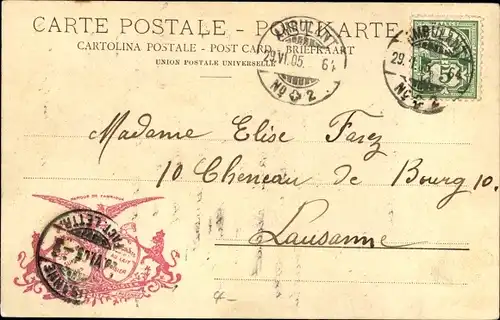 CARTE POSTALE - POSTKARTE
CARTOLINA POSTALE - POST CARD - BRIEFKAART
UNION POSTALE UNIVERSELLE
AMBULANT
29.VI.05. 64
No 2
AMBULANT
29. 64
No 2
5
Madame Elise Farez
10 Cheneau de Bourg 10.
Lausanne